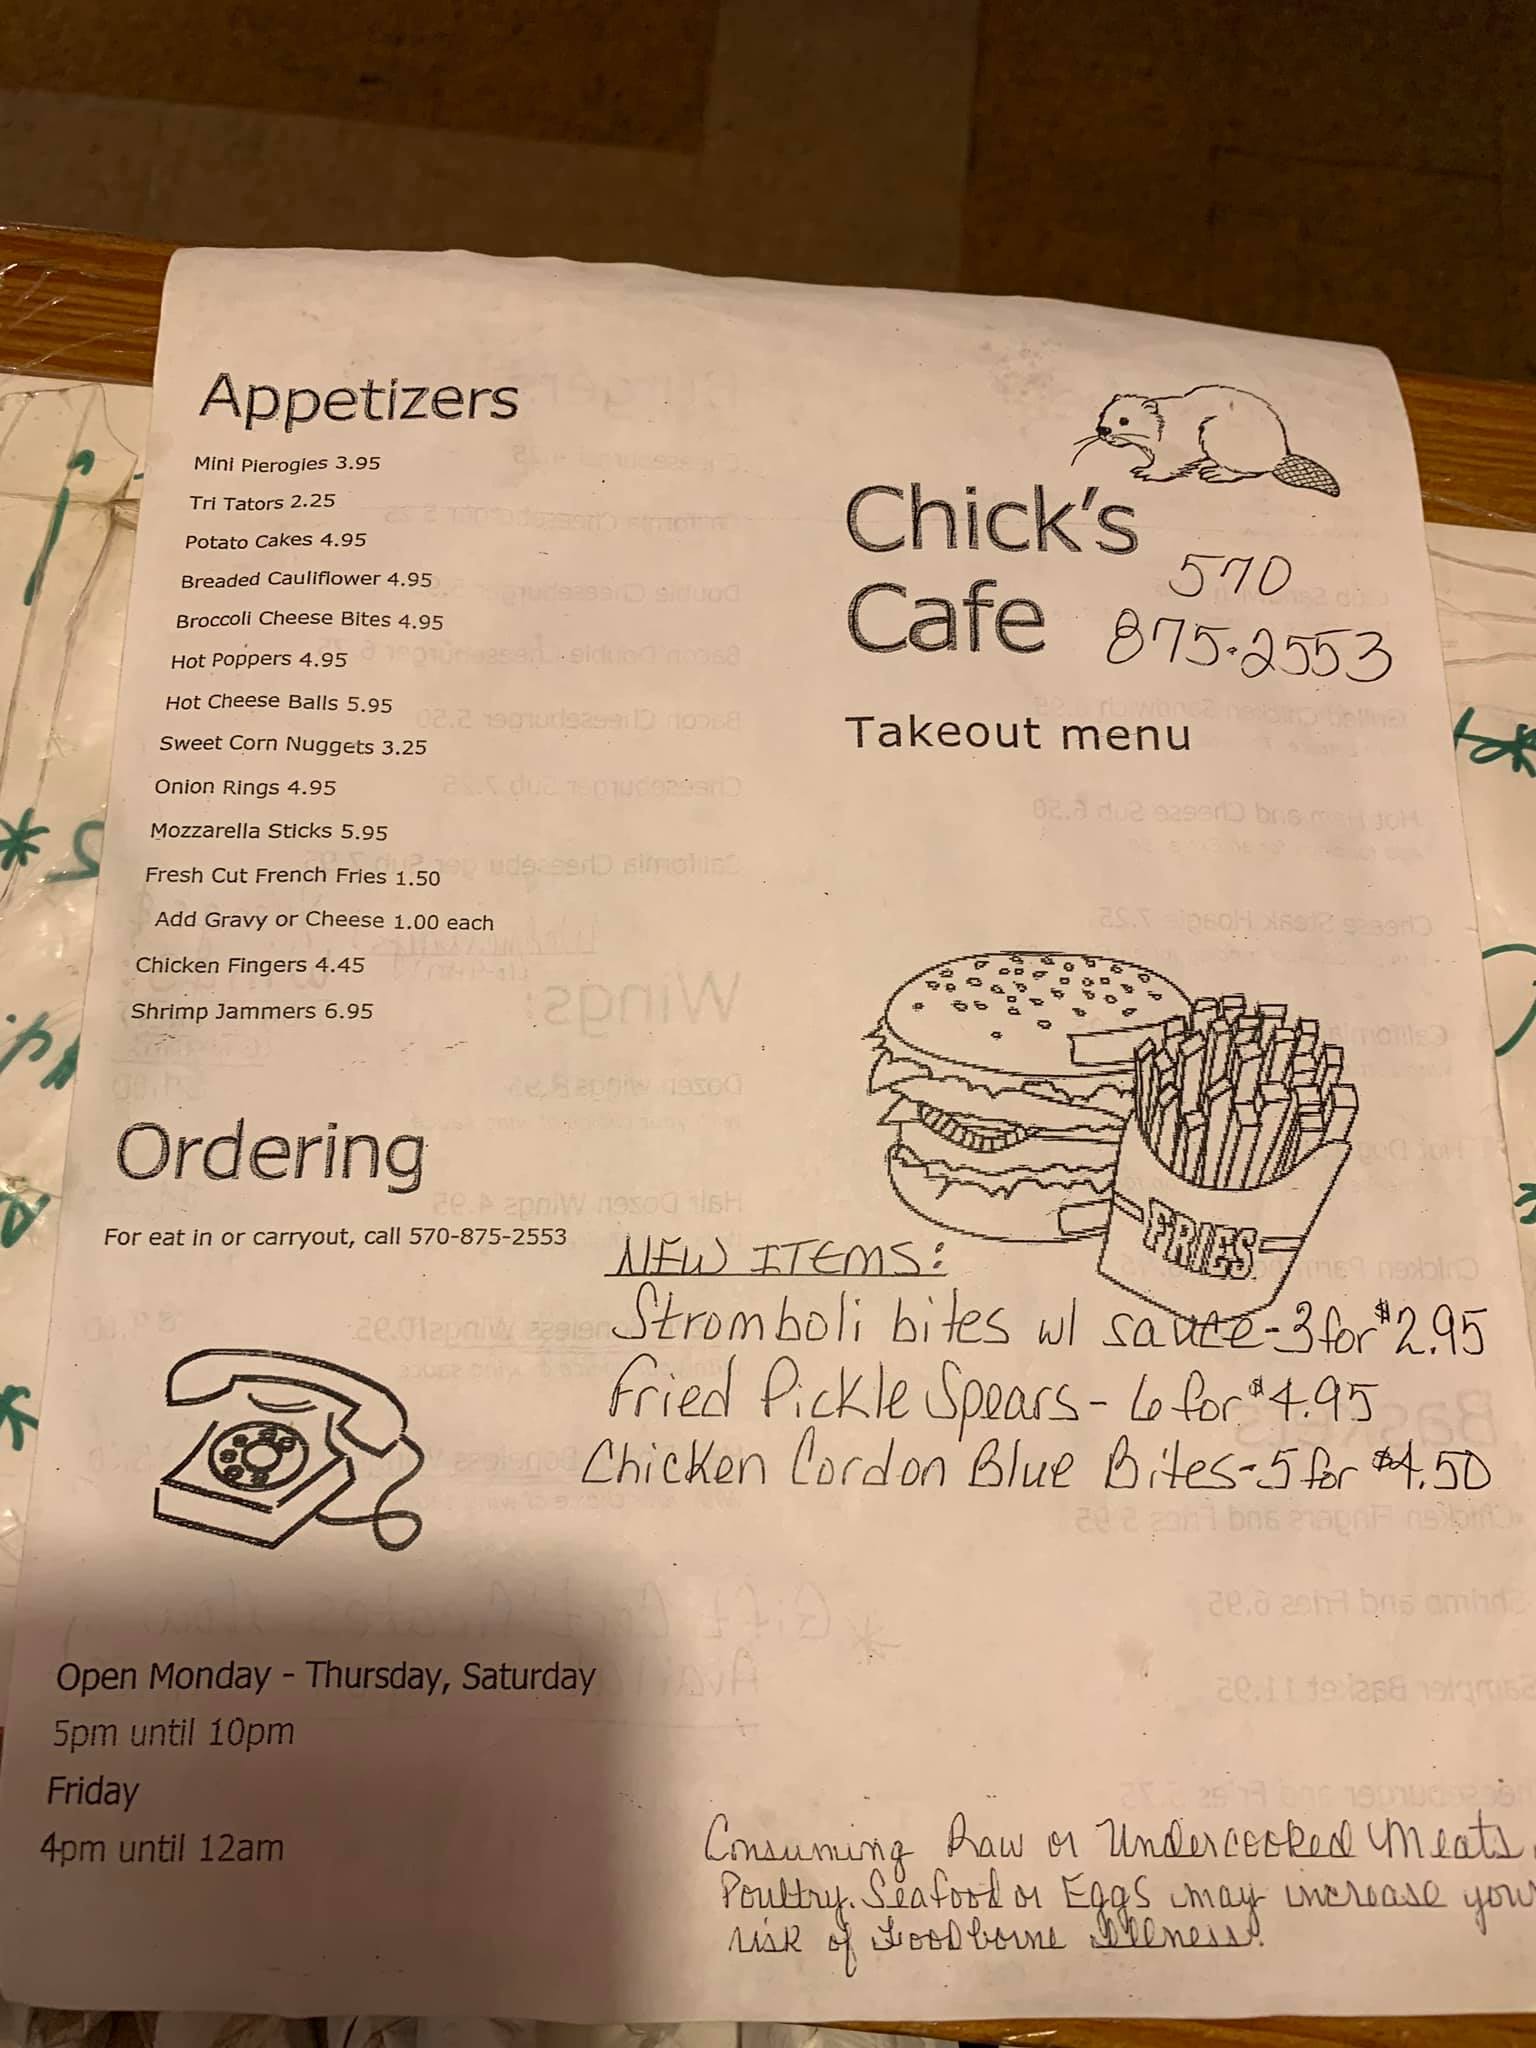 Appetizers
Mini Pierogies 3.95
Tri Tators 2.25
Potato Cakes 4.95
Breaded Cauliflower 4.95
Broccoli Cheese Bites 4.95
Hot Poppers 4.95
Hot Cheese Balls 5.95
Sweet Corn Nuggets 3.25
Onion Rings 4.95
Mozzarella Sticks 5.95
Fresh Cut French Fries 1.50
Add Gravy or Cheese 1.00 each
Chicken Fingers 4.45
Shrimp Jammers 6.95
Ordering
For eat in or carryout, call 570-875-2553
Open Monday - Thursday, Saturday
5pm until 10pm
Friday
4pm until 12am
Chick's
Cafe
570
875-2553
Takeout menu
FRIES
NEW ITEMS:
Stromboli bites w/ sauce-3 for $2.95
Fried Pickle Spears- 6 for $4.95
Chicken Cordon Blue Bites-5 for $4.50
Consuming Raw or Undercooked Meats,
Poultry. Seafood or Eggs may increase your
risk of Foodborne Illness.